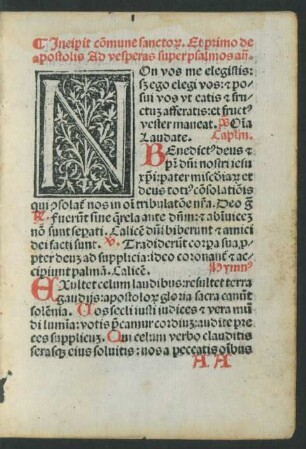 ¶ Incipit cōmune sanctoꝝ. Et primo de
apostolis Ad vesperas super psalmos añ.
NOn vos me elegistis:
sꝫ ego elegi vos: ⁊ po
sui vos vt eatis ⁊ fru
ctuꝫ afferatis: et fruct⁹
vester maneat. p̄s Oīa
Laudate. Caplm̄.
BEnedict⁹ deus ⁊
pr̄ dn̄i nostri iesu
xp̄i: pater misc̄diaꝝ et
deus toti⁹ cōsolatiōis
qui ꝯsolat̄ nos in oī tribulatōe nr̄a. Deo g̃
R. Fuerūt sine q̄rela ante dn̄m: ⁊ abīuicē ⁊
nō sunt sepati. Calicē dn̄i biberunt ⁊ amici
dei facti sunt. V. Tradiderūt corpa sua ꝓ
pter deuꝫ ad supplicia: ideo coronant̄ ⁊ ac
cipiunt palmā. Calicē. Hymn⁹
EXultet celum laudibus: resultet terra
gaudijs: apostoloꝝ gloria sacra canūt
solēnia. Uos secli iusti iudices ⁊ vera mū
di lumīa: votis p̄camur cordiuꝫ: audite pre
ces supplicuꝫ. Qui celum verbo clauditis
serasqꝫ eius soluitis: nos a peccatis oībus
A A